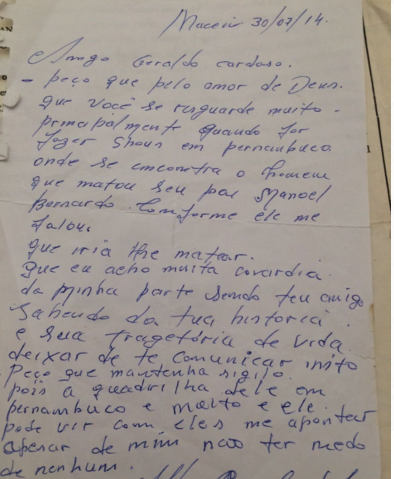 Maceió 30/07/14.
Amigo Geraldo cardoso.
- peço que pelo amor de Deus.
que você se resguarde muito -
principalmente quando for
fazer shows em pernambuco
onde se encontra o homem
que matou seu pai Manoel
Bernardo. Comforme ele me
falou,
que iria lhe matar.
que eu acho muita covardia
da minha parte sendo teu amigo
sabendo da tua historia
e sua tragetória de vida
deixar de te comunicar isto
Peço que mantenha sigilo.
pois a quadrilha dele em
pernambuco e muito e ele
pode vir com eles me apontar
apesar de mim nao ter medo
de nenhum.